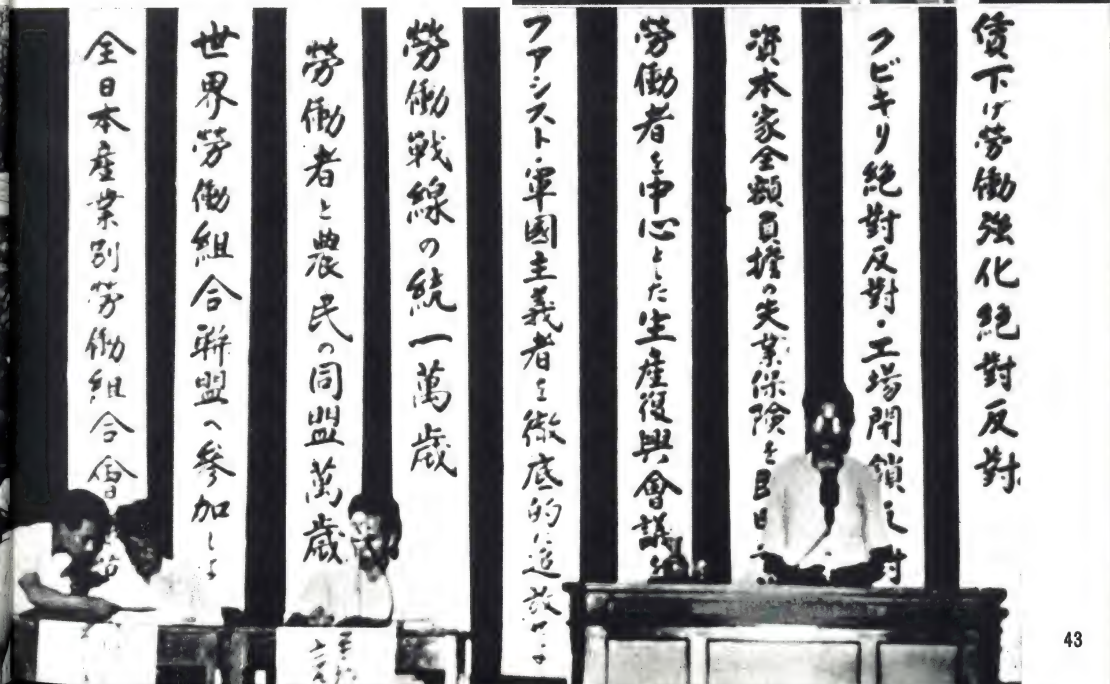 賃下げ勞働強化絶對反對
クビキリ絶對反對・工場閉鎖反対
資本家全額負擔の失業保険を即日
勞働者を中心とした生産復興會議を
ファシスト・軍國主義者を徹底的に追放せよ
勞働戦線の統一萬歳
勞働者と農民の同盟萬歳
世界勞働組合聯盟へ参加しよ
全日本産業別労働組合會
43